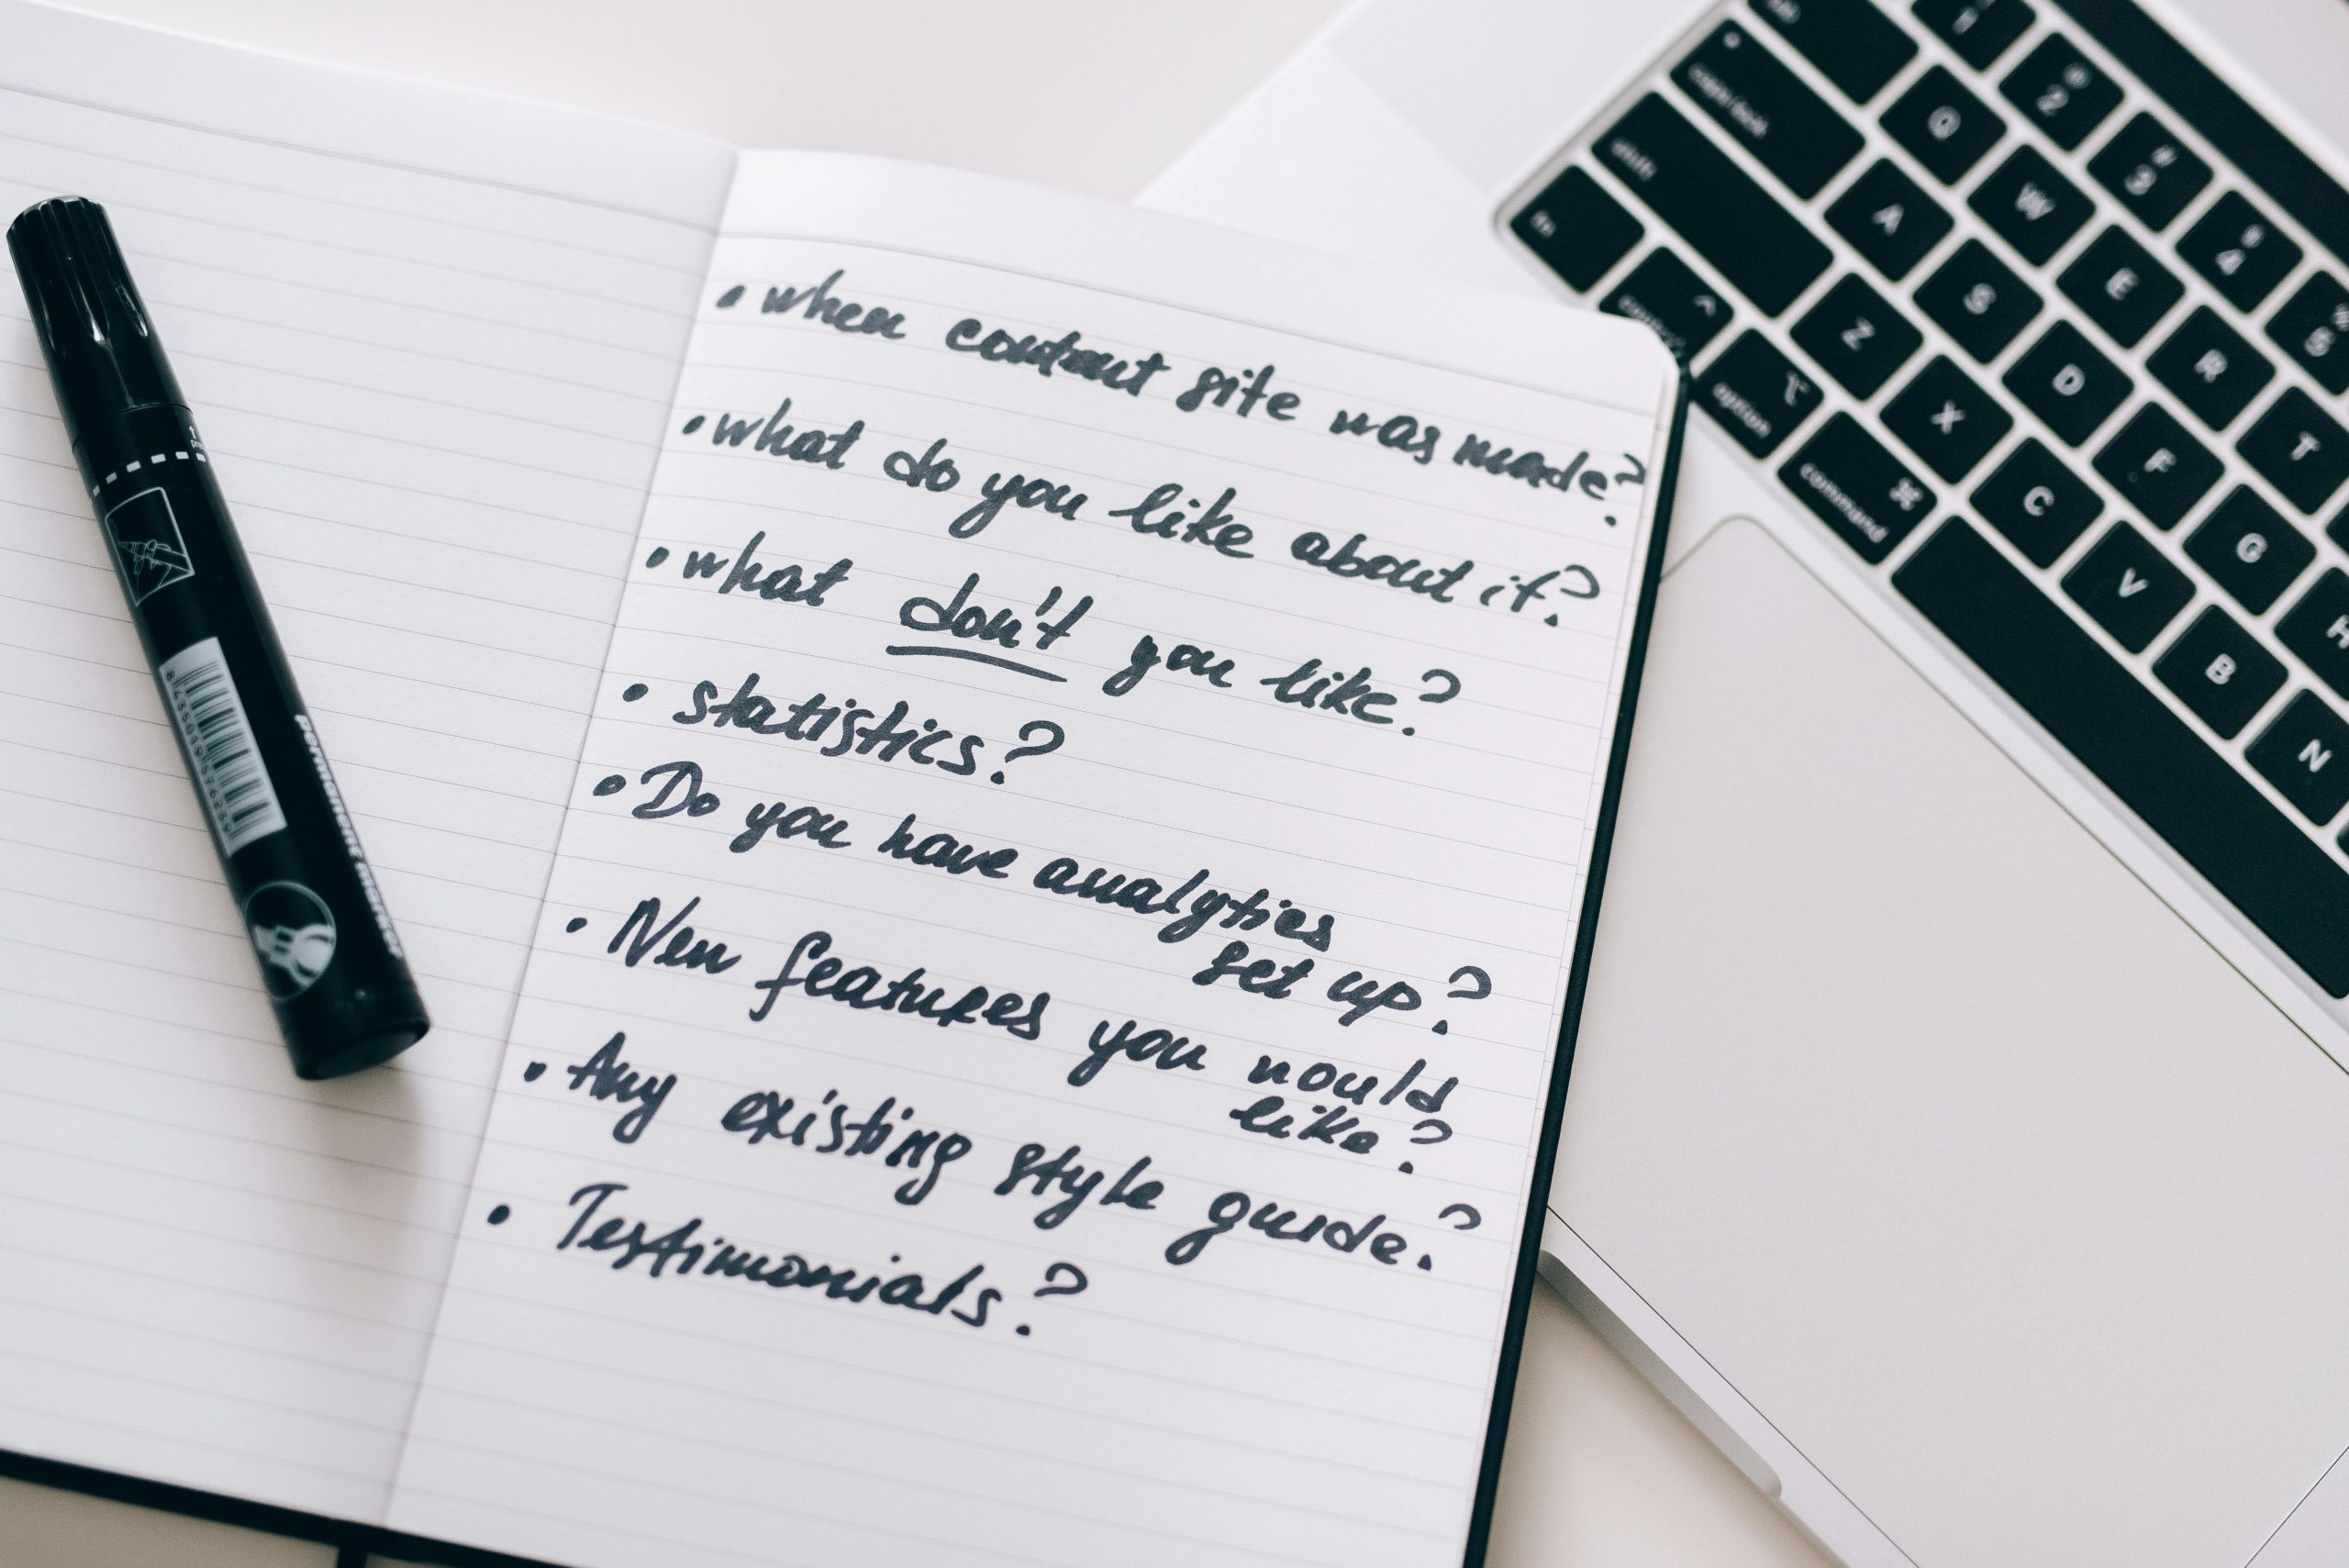 • when content site was made?
• what do you like about it?
• what don't you like?
• statistics?
• Do you have analytics
set up?
• New features you would
like?
• Any existing style guide?
• Testimonials?
permanent marker
caps lock
! 1
@ 2
# 3
$ 4
% 5
Q W E R T
shift
A S D F G H
fn
control
option
command
Z X C V B N